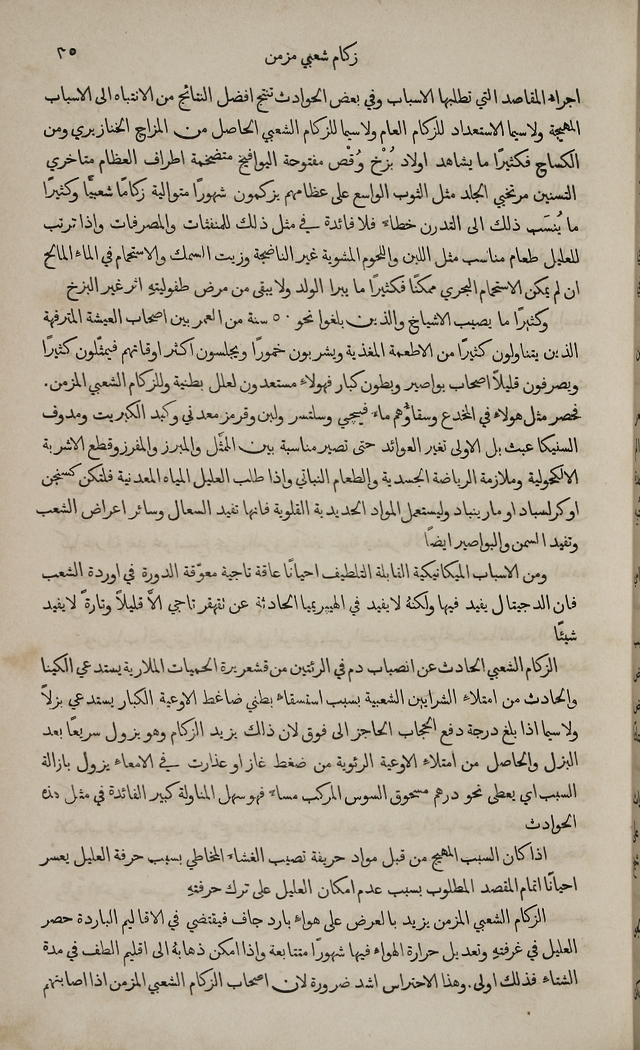 زكام شعبي مزمن
٣٥
اجراء المقاصد التي تطلبها الاسباب وفي بعض الحوادث تنتج افضل النتائج من الانتباه الى الاسباب
المهيجة ولاسيما الاستعداد للزكام العام ولاسيما للزكام الشعبي الحاصل من المزاج الخنازيري ومن
الكساح فكثيرًا ما يشاهد اولاد بُزْخ وُقْص مفتوحة اليوافيخ متضخمة اطراف العظام متاخري
التسنين مرتخي الجلد مثل الثوب الواسع على عظامهم يزكمون شهورًا متوالية زكامًا شعبيًّا وكثيرًا
ما يُنسَب ذلك الى التدرن خطاء فلا فائدة في مثل ذلك للمنفثات والمصرفات واذا ترتب
للعليل طعام مناسب مثل اللبن واللحوم المشوية غير الناضجة وزيت السمك والاستحمام في الماء المالح
ان لم يمكن الاستحمام البحري ممكنًا فكثيرًا ما يبرا الولد ولا يبقى من مرض طفوليتهِ اثر غير البزخ
وكثيرًا ما يصيب الاشياخ والذين بلغوا نحو ٥٠ سنة من العمر بين اصحاب العيشة المترفهة
الذين يتناولون كثيرًا من الاطعمة المغذية ويشربون خمورًا ويجلسون اكثر اوقاتهم فيمثّلون كثيرًا
ويصرفون قليلًا اصحاب بواصير وبطون كبار فهولاء مستعدون لعلل بطنية وللزكام الشعبي المزمن.
فحصر مثل هولاء في المخدع وسقاؤهم ماء فيچي وسلتسر ولبن وقرمز معدني وكبد الكبريت ومدوف
السنيكا عبث بل الاولى تغير العوائد حتى تصير مناسبة بين المثّل والمبرز والمفرز وقطع الاشربة
الالكحولية وملازمة الرياضة الجسدية والطعام النباتي واذا طلب العليل المياه المعدنية فلتكن كسنجن
او كرلسباد او مارينباد وليستعمل المواد الحديدية القلوية فانها تفيد السعال وسائر اعراض الشعب
وتفيد السمن والبواصير ايضًا
ومن الاسباب الميكانيكية القابلة التلطيف احيانًا عاقة تاجية معوّقة الدورة في اوردة الشعب
فان الدجيتال يفيد فيها ولكنهُ لا يفيد في الهيبريميا الحادثة عن تقهقر تاجي الاَّ قليلاً وتارةً لا يفيد
شيئًا
الزكام الشعبي الحادث عن انصباب دم في الرئتين من قشعريرة الحميات الملارية يستدعي الكينا
والحادث من امتلاء الشرايين الشعبية بسبب استسقاء بطني ضاغط الاوعية الكبار يستدعي بزلاً
ولاسيما اذا بلغ درجة دفع الحجاب الحاجز الى فوق لان ذلك يزيد الزكام وهو يزول سريعًا بعد
البزل والحاصل من امتلاء الاوعية الرئوية من ضغط غاز او عذارت في الامعاء يزول بازالة
السبب اي يعطى نحو درهم مسحوق السوس المركب مساء فهو سهل المناولة كبير الفائدة في مثل هذه
الحوادث
اذا كان السبب المهيج من قبل مواد حريفة تصيب الغشاء المخاطي بسبب حرفة العليل يعسر
احيانًا اتمام المقصد المطلوب بسبب عدم امكان العليل على ترك حرفتهِ
الزكام الشعبي المزمن يزيد بالعرض على هواء بارد جاف فيقتضي في الاقاليم الباردة حصر
العليل في غرفتهِ وتعديل حرارة الهواء فيها شهورًا متتابعة واذا امكن ذهابهُ الى اقليم الطف في مدة
الشتاء فذلك اولى. وهذا الاحتراس اشد ضرورة لان اصحاب الزكام الشعبي المزمن اذا اصابتهم